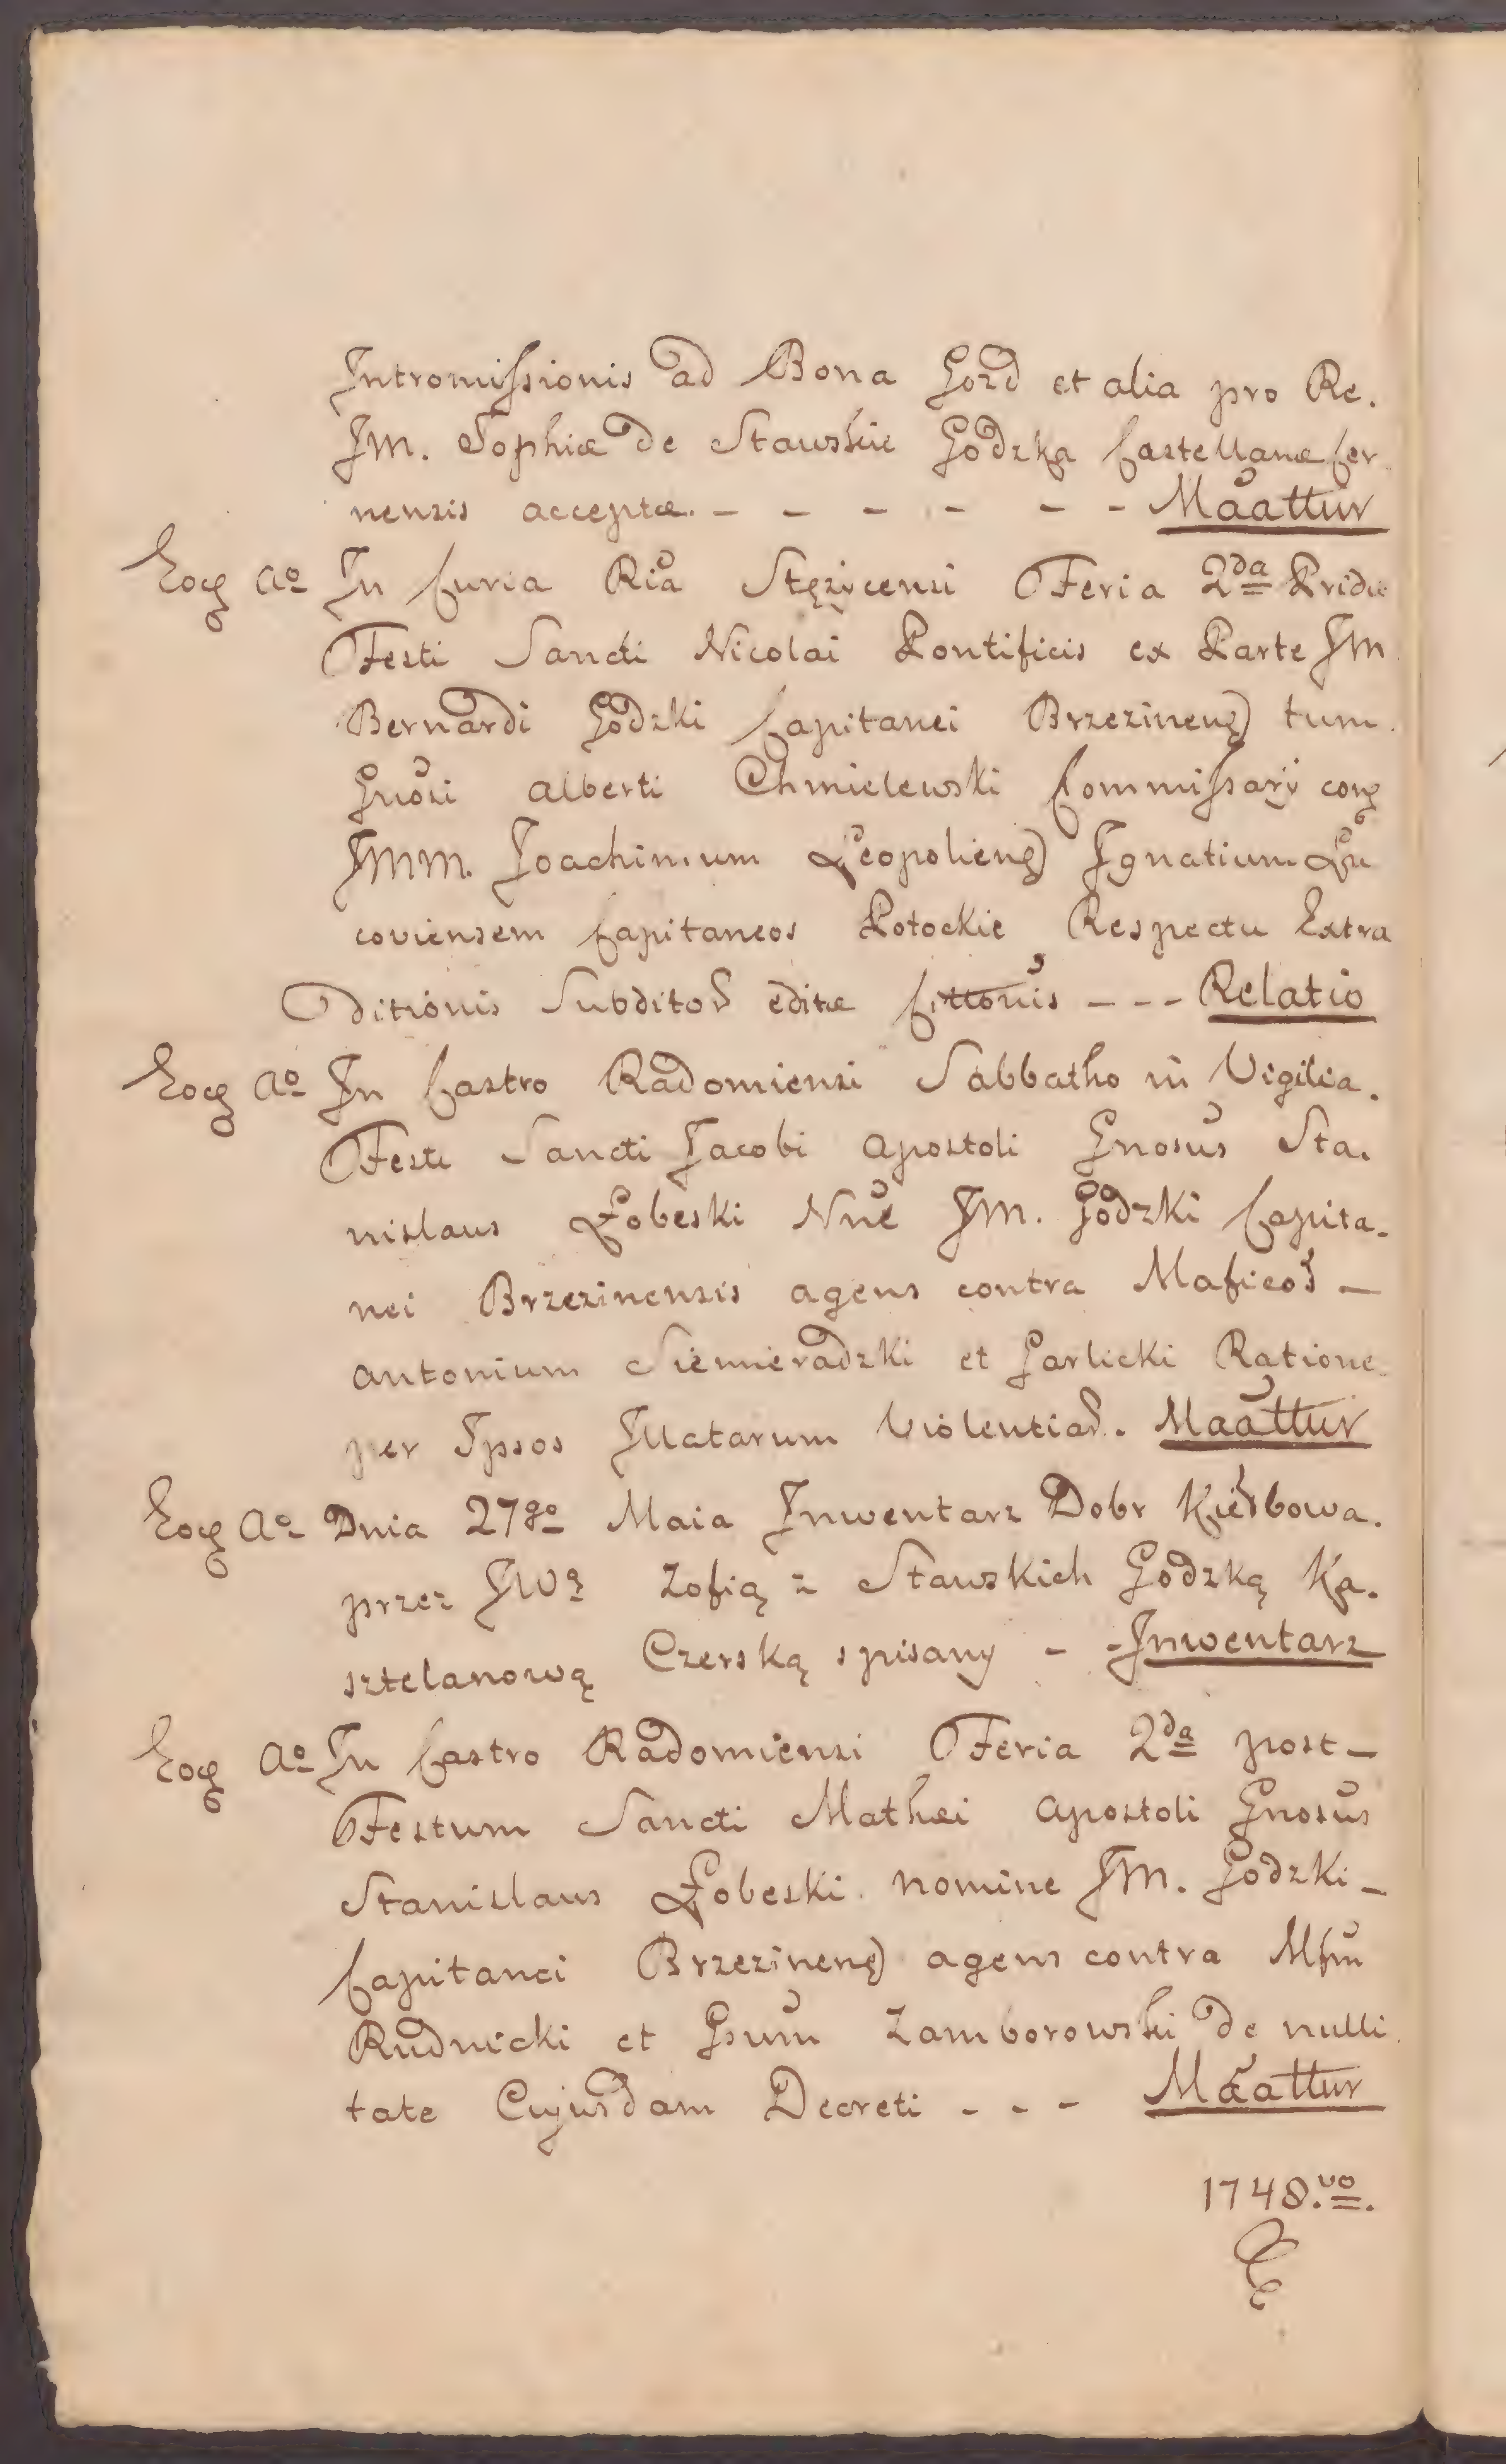 Intromissionis ad Bona Gozd et alia pro Re.
JM. Sophiæ de Stawskie Godzka Castellanæ Cer
nensis acceptæ. - - - - - - Maattur
Eoq Ao In Curia Ria Stężycensi Feria 2da Pridie
Festi Sancti Nicolai Pontificis ex Parte JM
Bernardi Godzki Capitanei Brzezinens tum
Gnosi Alberti Chmielewski Commissarÿ
JMM. Joachimum Leopoliens Ignatium Łu
coviensem Capitaneos Potockie Respectu Extra
ditionis Subditor editæ Cittonis - - - Relatio
Eoq Ao In Castro Radomiensi Sabbatho in Vigilia.
Festi Sancti Jacobi Apostoli Gnosus Sta.
nislaus Łobeski Nne JM. Godzki Capita.
nei Brzezinensis agens contra Maficos -
Antonium Siemieradzki et Garlicki Ratione
per Ipsos Illatarum Violentiar. Maattur
Eoq Ao Dnia 27go Maia Inwentarz Dobr Kiełbowa.
przez JW Zofią z Stawskich Godzką Ka.
sztelanową Czerską spisany - - Inwentarz
Eoq Ao In Castro Radomiensi Feria 2da post -
Festum Sancti Mathæi Apostoli Gnosus
Stanislaus Łobeski nomine JM. Godzki -
Capitanei Brzezinens agens contra Mfm
Rudnicki et Gsum Zamborowski de nulli
tate Cujusdam Decreti - - - Maattur
1748.vo.